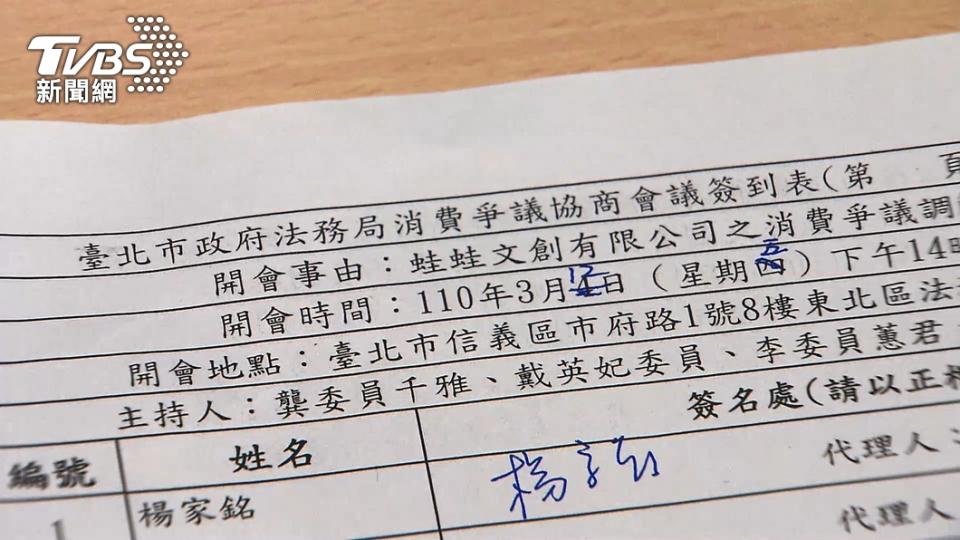 TVBS
新聞網
臺北市政府法務局消費爭議協商會議簽到表(第 頁
開會事由：蛙蛙文創有限公司之消費爭議調
開會時間：110年3月12日（星期五）下午14時
開會地點：臺北市信義區市府路1號8樓東北區法
主持人：龔委員千雅、戴英妃委員、李委員蕙君
編號 姓名 簽名處(請以正楷
1 楊家銘 楊家銘 代理人：
代理人